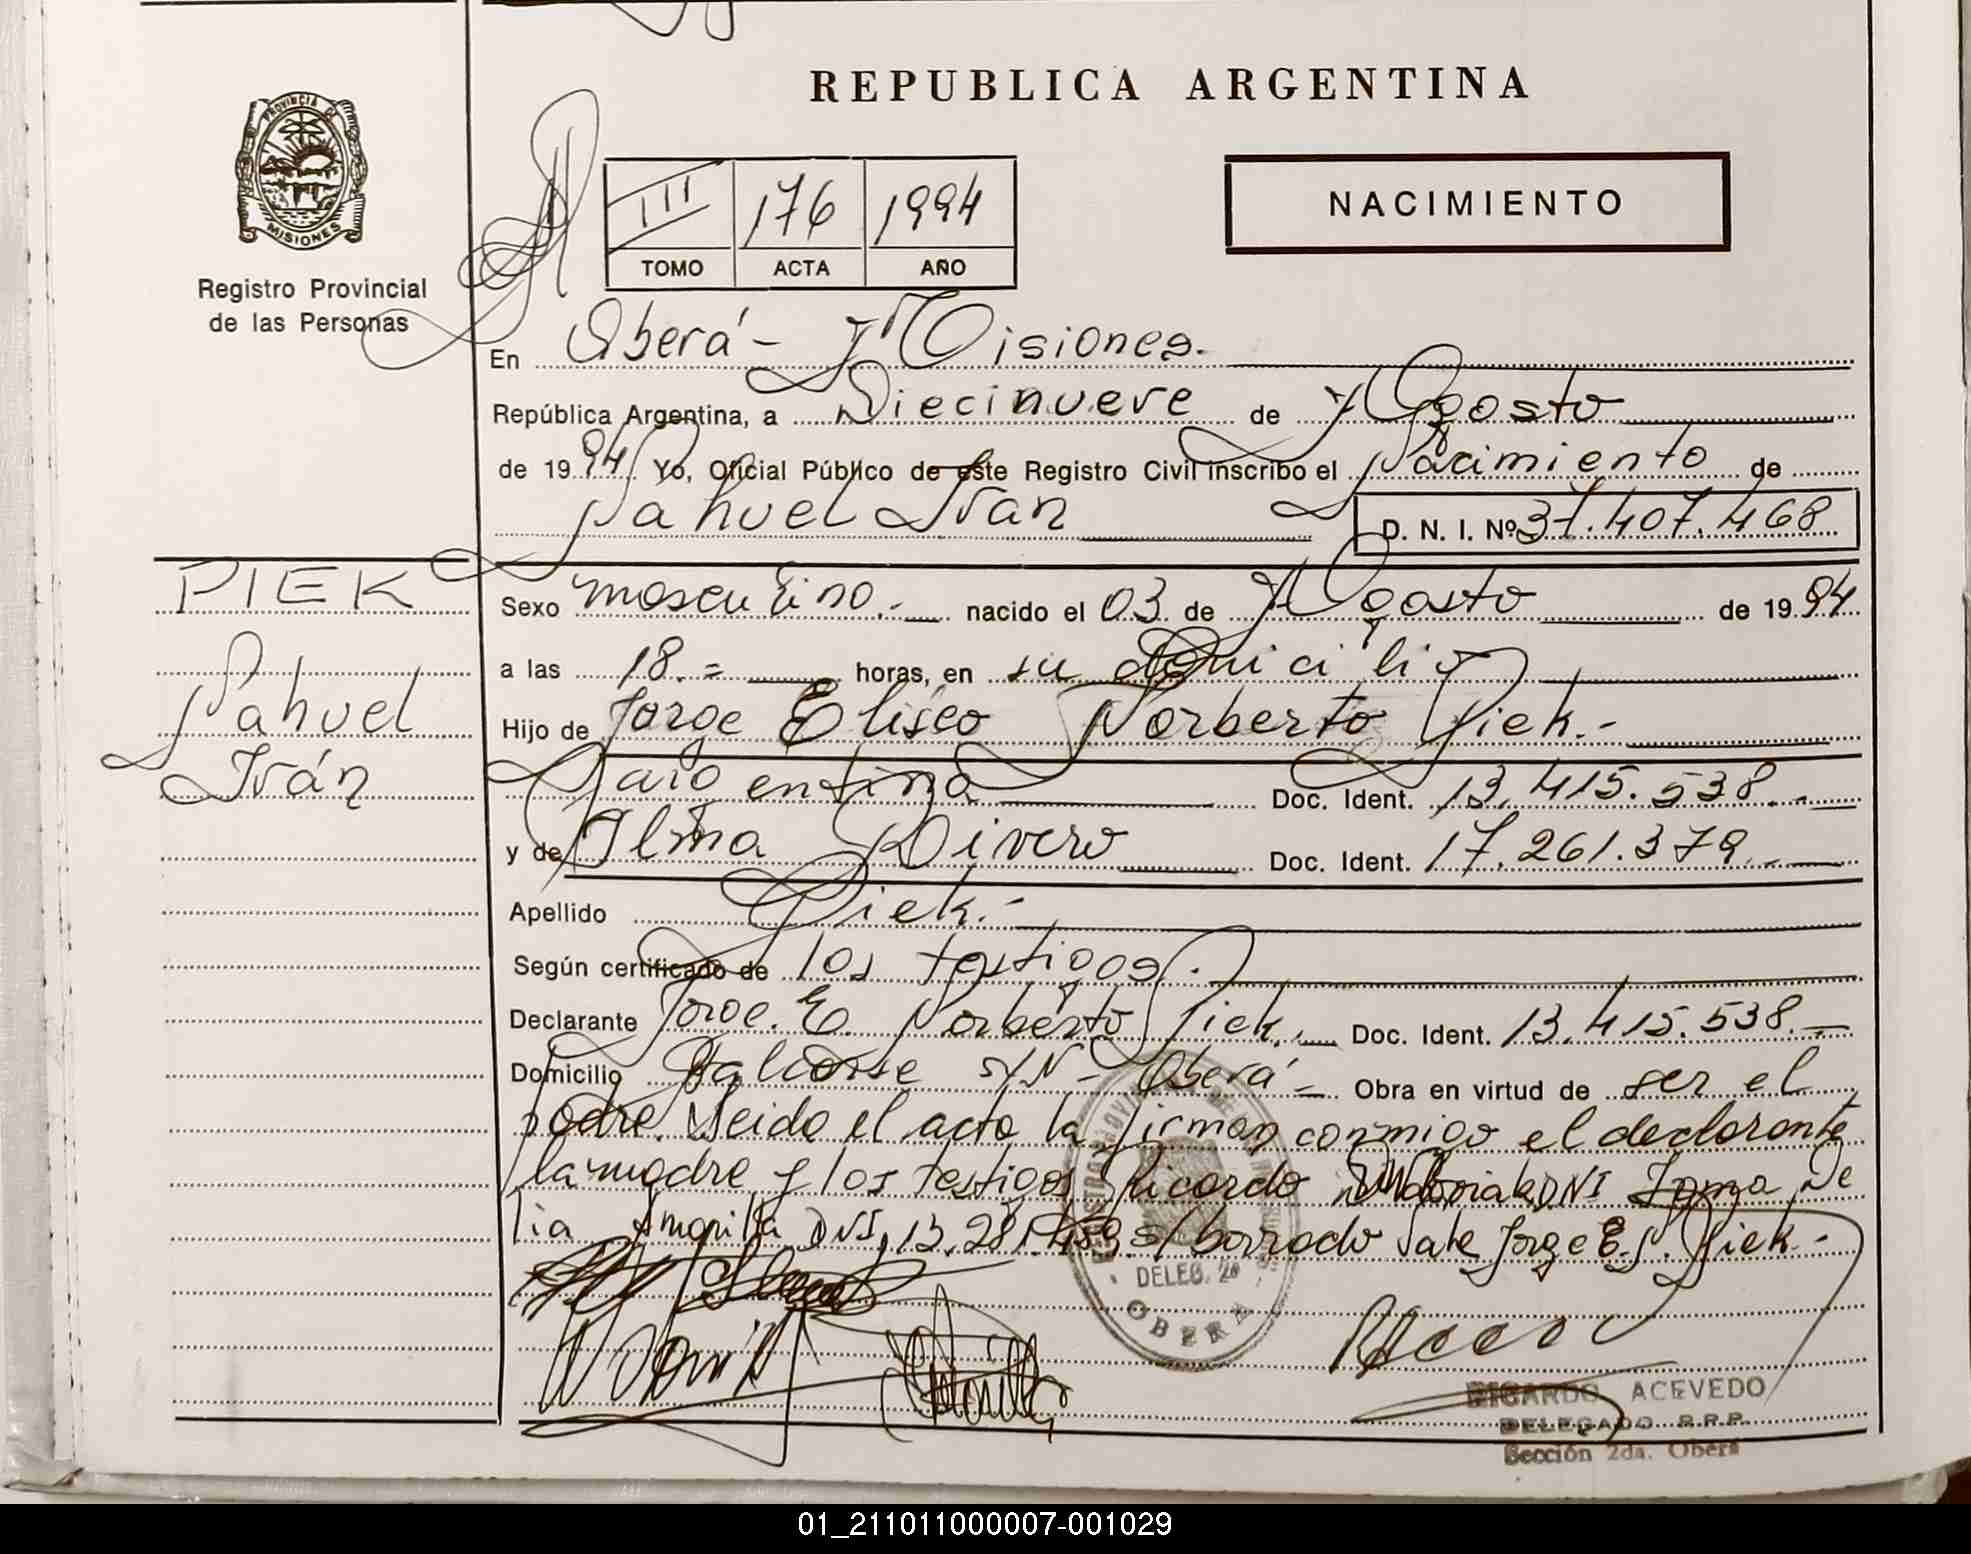 REPUBLICA ARGENTINA
PROVINCIA DE
MISIONES
Registro Provincial
de las Personas
III 176 1994
TOMO ACTA AÑO
NACIMIENTO
En Oberá - Misiones.
República Argentina, a Diecinueve de Agosto
de 1994 Yo, Oficial Público de este Registro Civil inscribo el Nacimiento de
Nahuel Iván
D. N. I. Nº 37.407.468
PIEK
Nahuel
Iván
Sexo masculino.- nacido el 03 de Agosto de 1994
a las 18.= horas, en su domicilio
Hijo de Jorge Eliseo Norberto Piek.-
Argentina Doc. Ident. 13.415.538.-
y de Ilma Rivero Doc. Ident. 17.261.379.-
Apellido Piek.-
Según certificado de los testigos.
Declarante Jorge. E. Norberto Piek. Doc. Ident. 13.415.538.-
Domicilio s/Nº - Oberá - Obra en virtud de ser el
padre. Leida el acta la firman conmigo el declarante
la madre y los testigos Ricardo DNI De
lia DNI, 13.281. s/borrado Vale Jorge E. N. Piek.-
DELEG. 2a
OBERA
RICARDO ACEVEDO
DELEGADO R.R.P.
Sección 2da. Oberá
01_211011000007-001029